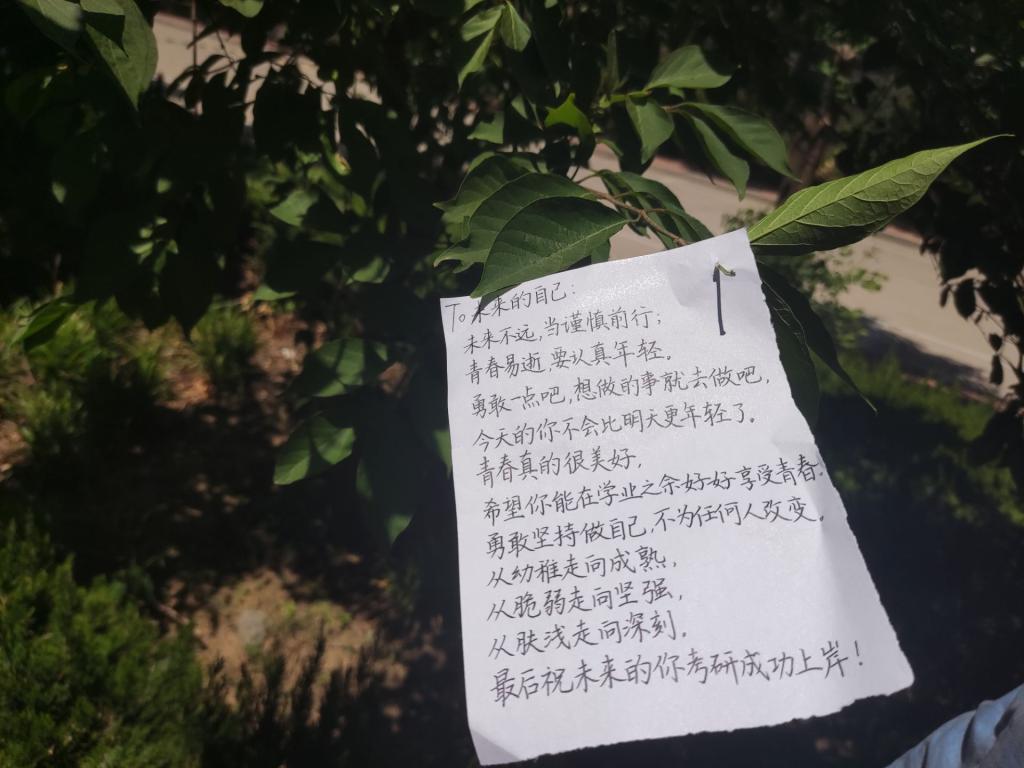 To 未来的自己：
未来不远，当谨慎前行；
青春易逝，要认真年轻。
勇敢一点吧，想做的事就去做吧，
今天的你不会比明天更年轻了。
青春真的很美好，
希望你能在学业之余好好享受青春。
勇敢坚持做自己，不为任何人改变。
从幼稚走向成熟，
从脆弱走向坚强，
从肤浅走向深刻。
最后祝未来的你考研成功上岸！